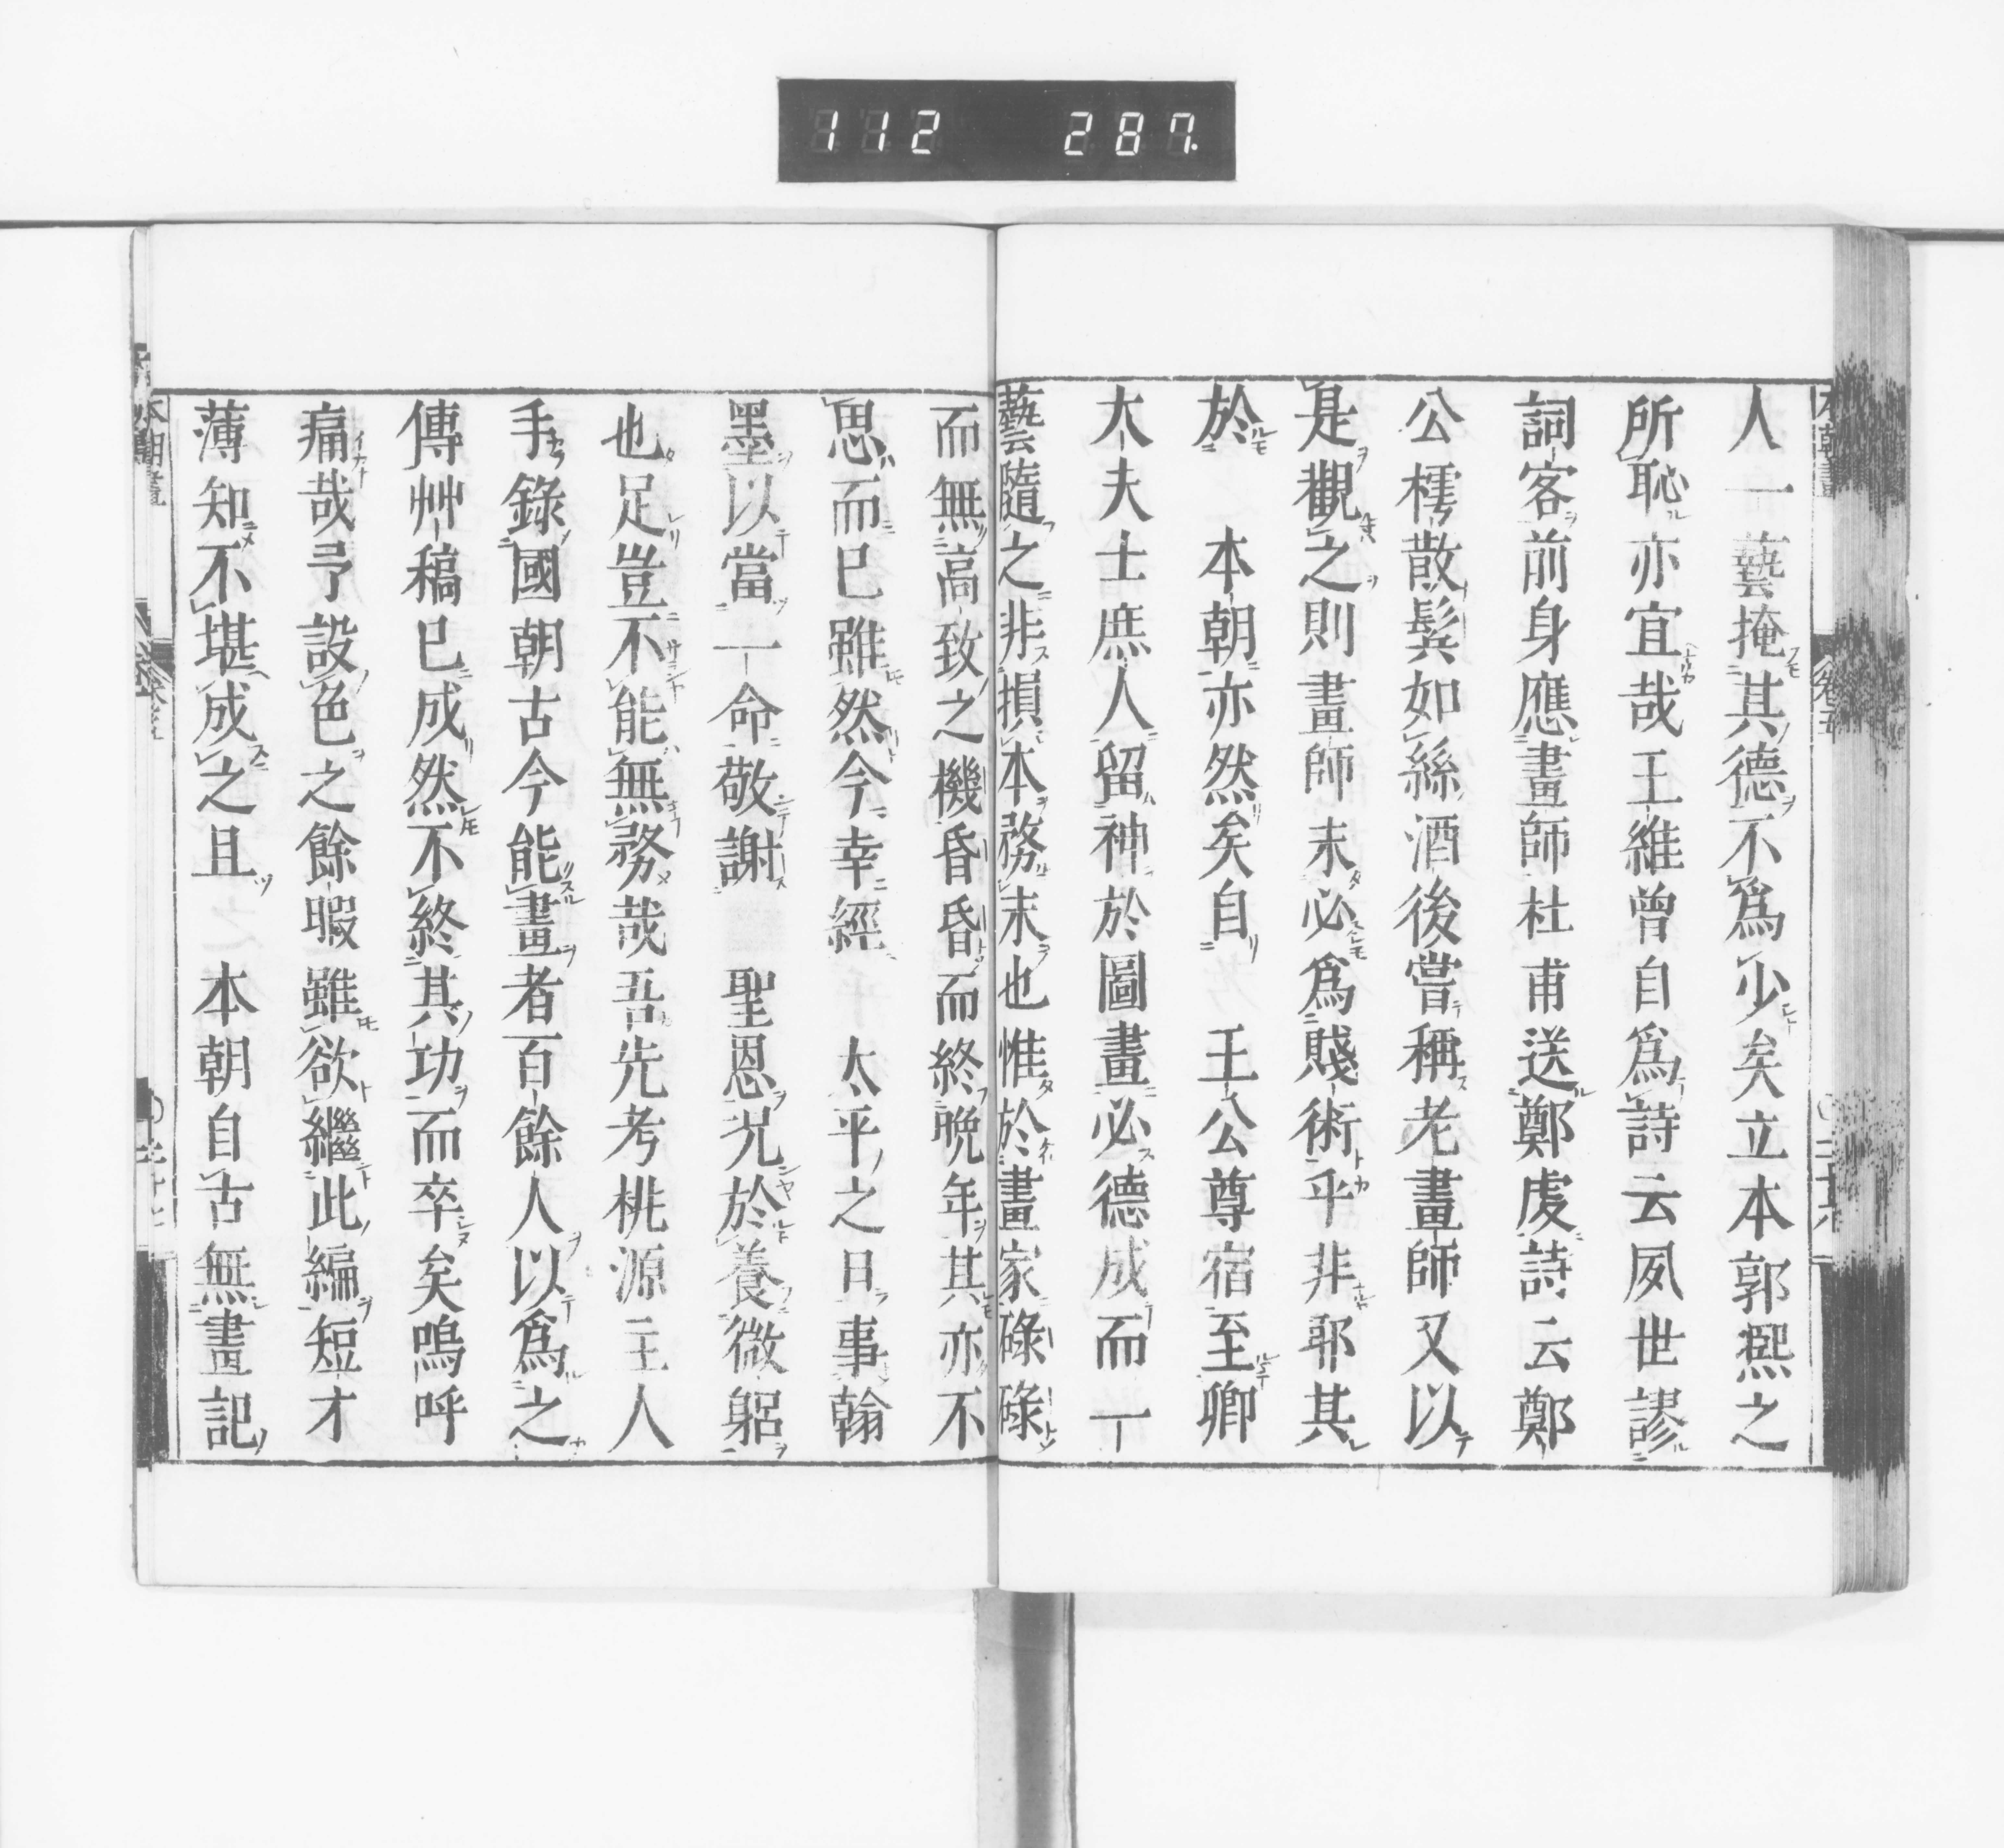 112 287
人一藝掩其德不爲少矣立本郭熙之
所恥亦宜哉王維曾自爲詩云夙世謬
詞客前身應畫師杜甫送鄭虔詩云鄭
公樗散鬂如絲酒後嘗稱老畫師又以
是觀之則畫師未必爲賤術乎非耶其
於 本朝亦然矣自 王公尊宿至卿
大夫士庶人留神於圖畫必德成而一
藝隨之非損本務末也惟於畫家碌碌
而無高致之機昏昏而終晚年其亦不
思而已雖然今幸經 太平之日事翰
墨以當一命敬謝 聖恩况於養微躬
也足豈不能無務哉吾先考桃源主人
手錄國朝古今能畫者百餘人以爲之
傳艸稿已成然不終其功而卒矣嗚呼
痛哉予設色之餘暇雖欲繼此編短才
薄知不堪成之且 本朝自古無畫記